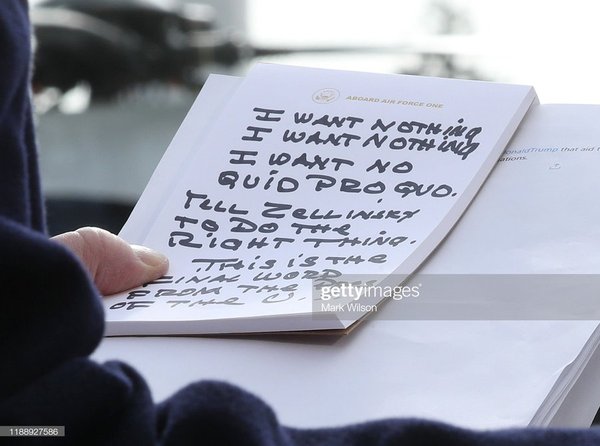 ABOARD AIR FORCE ONE
I WANT NOTHING
I WANT NOTHING
I WANT NO
QUID PRO QUO.
TELL ZELLINSKY
TO DO THE
RIGHT THING.
THIS IS THE
FINAL WORD
FROM THE
OF THE U.
onaldTrump that aid t
ations.
gettyimages
Mark Wilson
1188927586